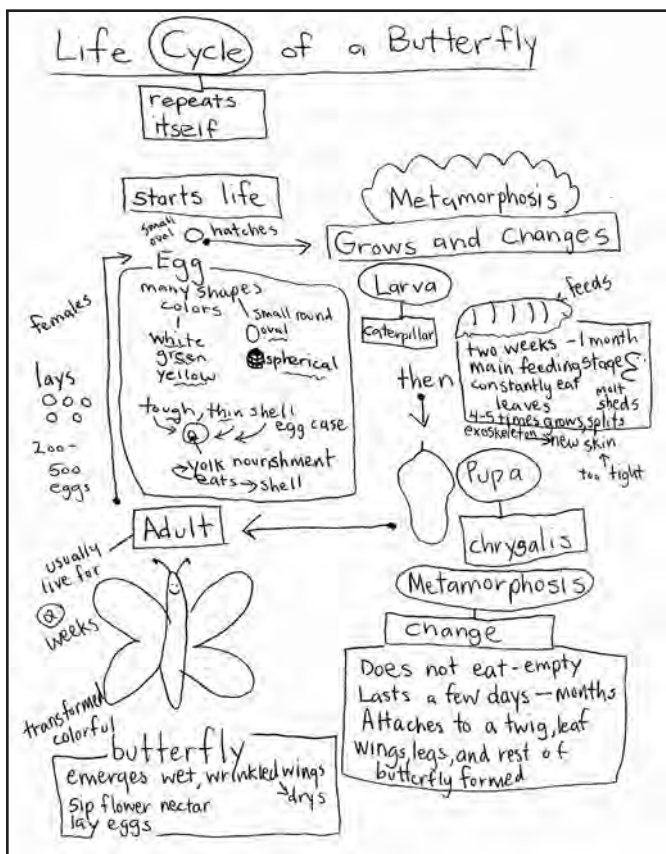 Life Cycle of a Butterfly
repeats
itself
starts life
small
oval
hatches
Egg
many shapes
colors
white
green
yellow
small round
oval
spherical
tough, thin shell
egg case
yolk nourishment
eats → shell
females
lays
200-
500
eggs
Metamorphosis
Grows and Changes
Larva
caterpillar
feeds
two weeks - 1 month
main feeding stage
constantly eat
leaves
molt
sheds
4-5 times grows, splits
exoskeleton → new skin
too tight
then
Pupa
chrygalis
Metamorphosis
change
Does not eat-empty
Lasts a few days - months
Attaches to a twig, leaf
wings, legs, and rest of
butterfly formed
Adult
usually
live for
2
weeks
transformed
colorful
butterfly
emerges wet, wrinkled wings
→ drys
sip flower nectar
lay eggs